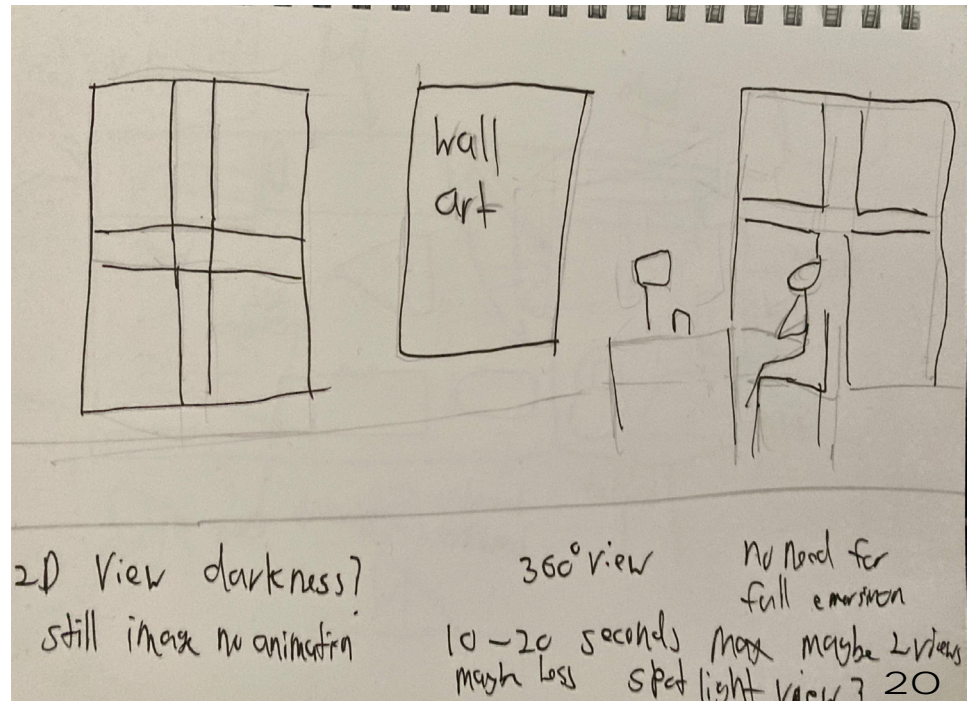 wall
art
2D View darkness?
still image no animation
360° view
no need for
full emersion
10-20 seconds max maybe 2 views
maybe less spot light view?
20